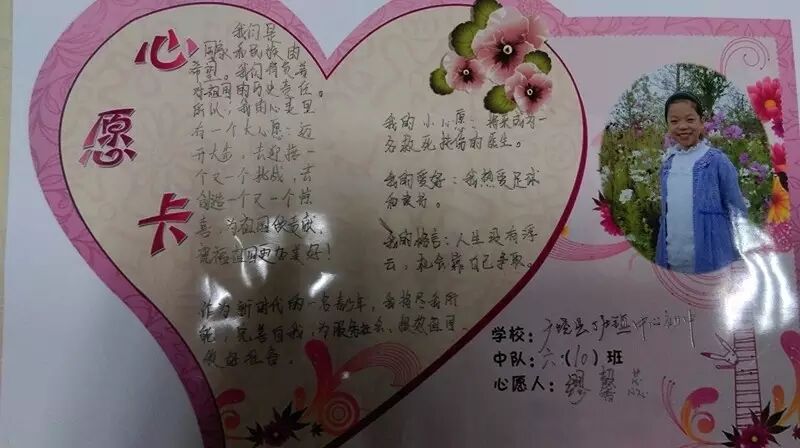 心愿卡
我们是
国家和民族的
希望。我们肩负着
对祖国的历史责任。
所以，我的心灵里
有一个大心愿：迈
开大步，去迎接一
个又一个挑战，去
创造一个又一个惊
喜，为祖国做贡献，
祝福祖国更加美好！
作为新时代的一名青少年，我将尽我所
能，完善自我，为服务社会、报效祖国
做好准备。
我的小心愿：将来成为一
名救死扶伤的医生。
我的爱好：我热爱足球
和读书。
我的格言：人生没有浮
云，机会靠自己争取。
学校：
中队：六（10）班
心愿人：